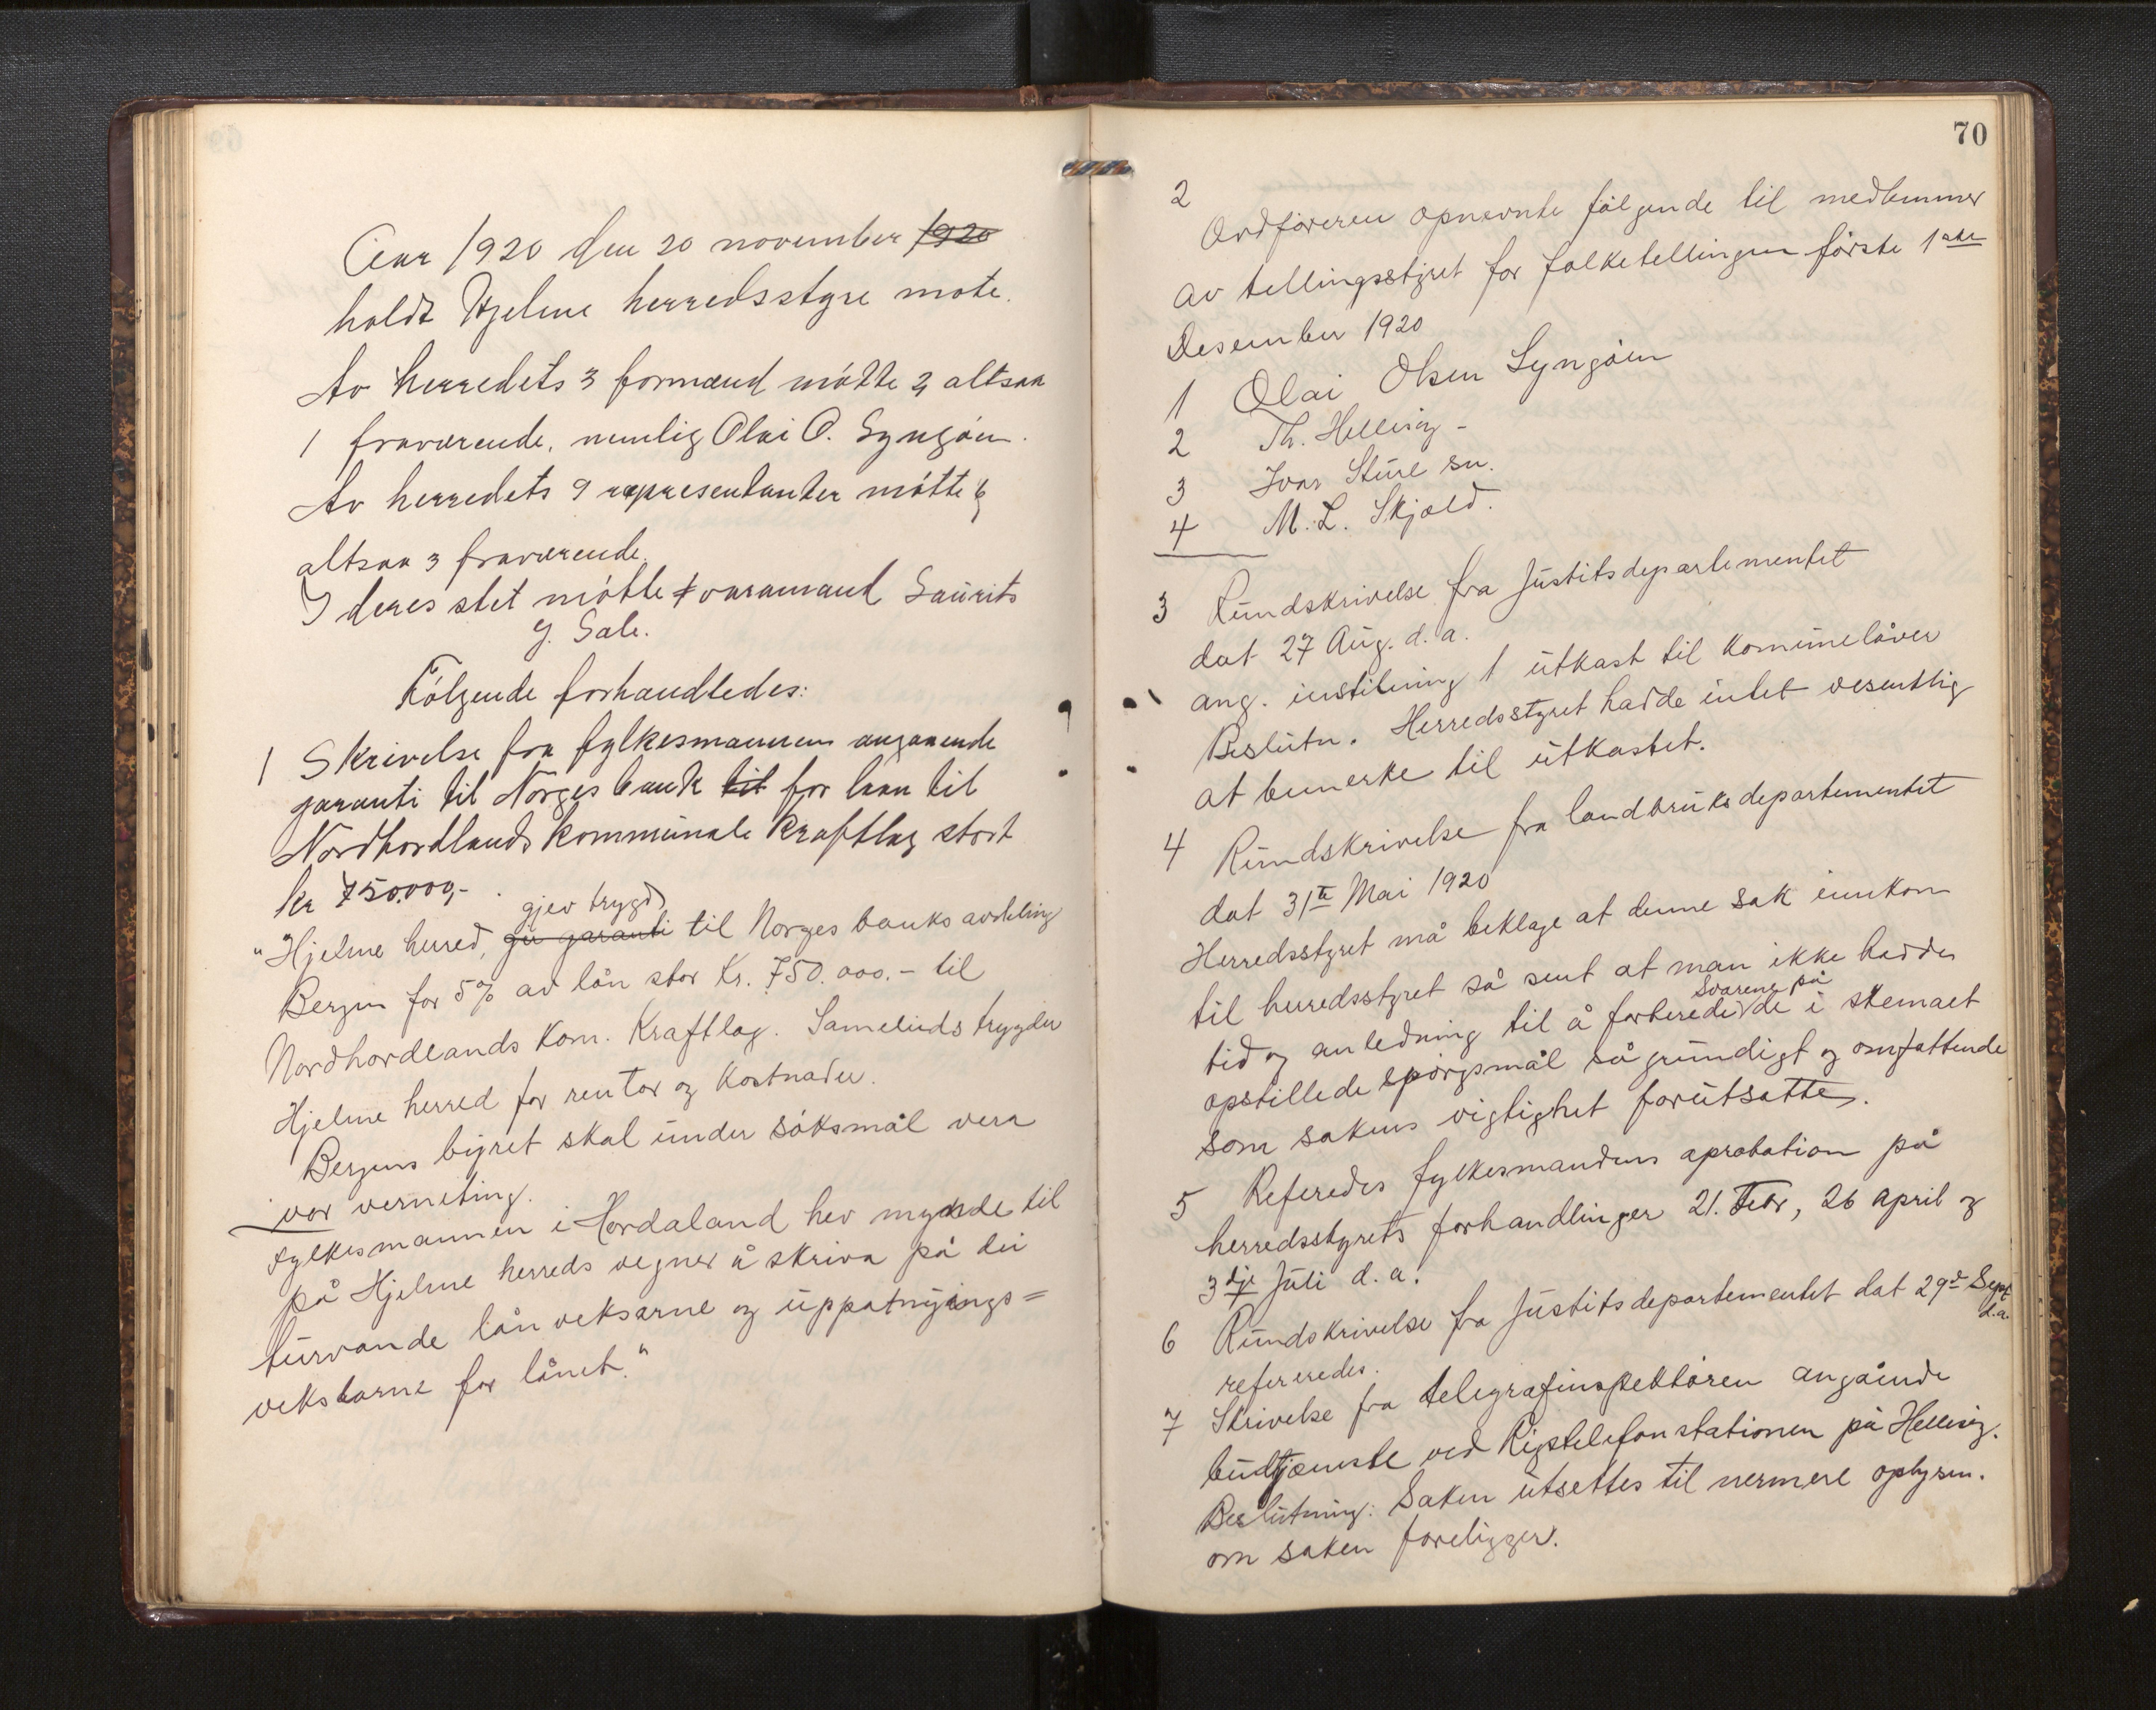 Aar 1920 den 20 november 1920
holdt Hjelme herredsstyre møte.
Av herredets 3 formænd møtte 2 altsaa
1 fraværende, nemlig Olai O. Lyngøen.
Av herredets 9 repræsentanter møtte 6
altsaa 3 fraværende.
I deres stet møtte varamand Laurits
J. Sale.
Følgende forhandledes:
1 Skrivelse fra fylkesmannen angaaende
garanti til Norges bank til for laan til
Nordhordlands kommunale kraftlag stort
kr 750.000,-
gjev trygd
"Hjelme herred, gir garanti til Norges banks avdeling
Bergen for 5% av lån stor Kr. 750.000.- til
Nordhordlands Kom. Kraftlag. Sameleids trygder
Hjelme herred for rentor og kostnader.
Bergens byret skal under søksmål vera
vor verneting.
Fylkesmannen i Hordaland hev mynde til
på Hjelme herreds vegner å skriva på dei
turvande lån veksarne og uppatnyings=
vekslarne for lånet."
70
2
Ordføreren opnevnte følgende til medlemmer
av tellingsstyret for folketellingen første 1ste
Desember 1920
1 Olai Olsen Lyngøen
2 Th. Hellesøy -
3 Ivar Sture sn.
4 M. L. Skjold.
3 Rundskrivelse fra Justitsdepartementet
dat 27 Aug. d. a.
ang. instilning 1 utkast til komunelåver
Beslutn. Herredsstyret hadde intet vesentlig
at bemerke til utkastet.
4 Rundskrivelse fra landbruksdepartementet
dat 31te Mai 1920
Herredsstyret må beklage at denne sak innkom
til herredsstyret så sent at man ikke hadde
Svarene på
tid og anledning til å forberede de i skemaet
opstillede spørgsmål så grundigt og omfattende
som sakens vigtighet forutsatte.
5 Referedes fylkesmandens aprobation på
herredsstyrets forhandlinger 21. Febr, 26 april og
3dje Juli d. a.
6 Rundskrivelse fra Justitsdepartementet dat 29de Sept
d.a.
refereredes.
7 Skrivelse fra telegrafinspektøren angående
budtjæneste ved Rigstelefonstationen på Hellesøy.
Beslutning: Saken utsettes til nermere oplysn.
om saken foreligger.